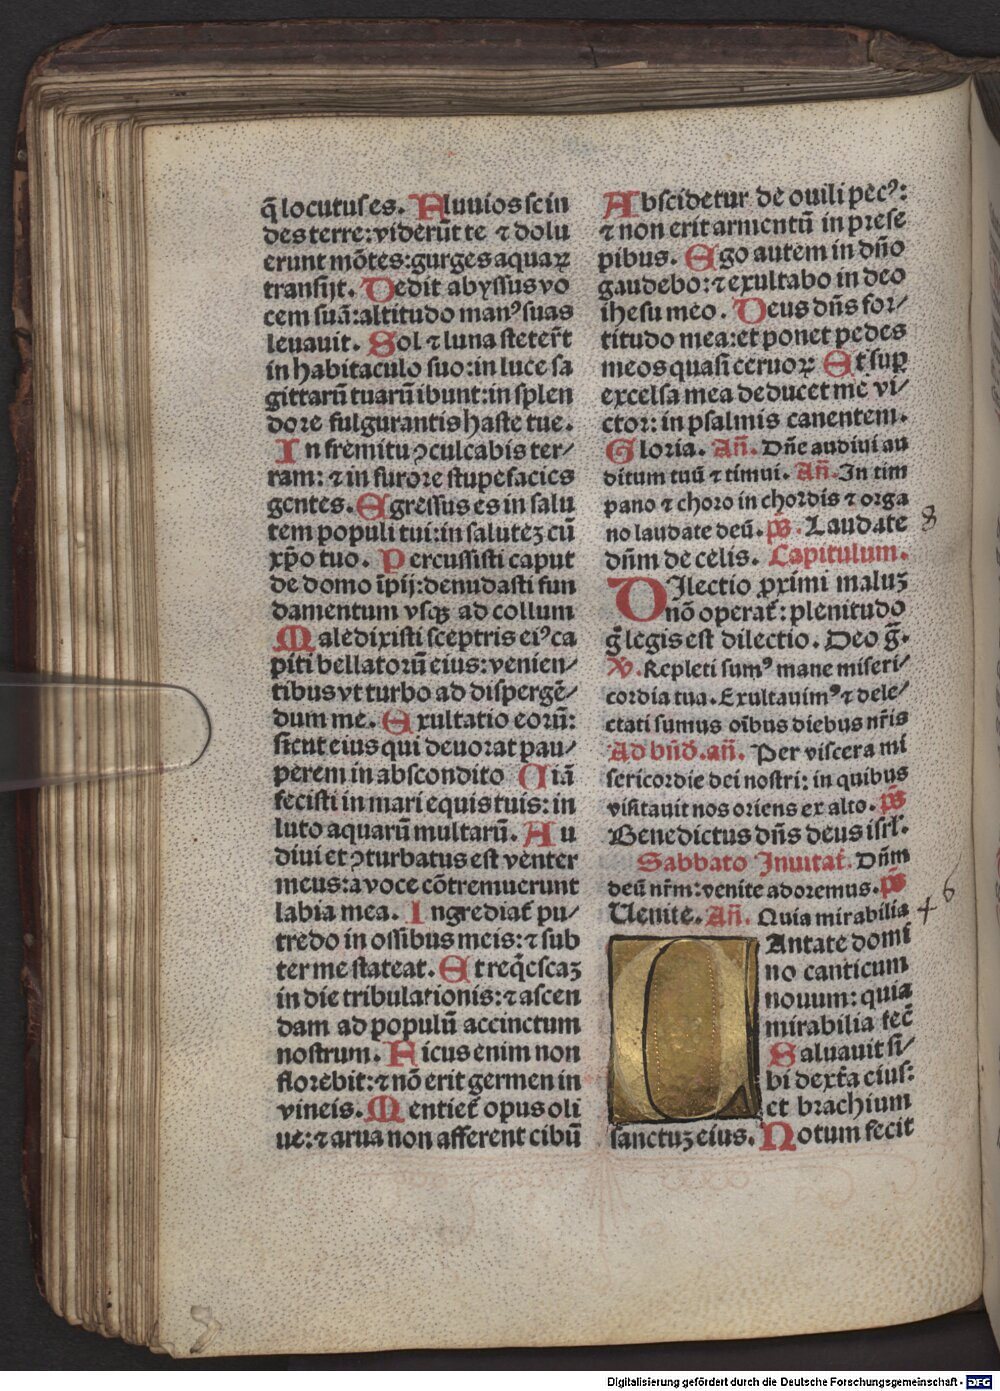 q̄ locutus es. Fluuios scin
des terre: viderūt te ⁊ dolu
erunt mōtes: gurges aquaꝝ
transijt. Dedit abyssus vo
cem suā: altitudo manꝰ suas
leuauit. Sol ⁊ luna steter̄t
in habitaculo suo: in luce sa
gittarū tuarū ibunt: in splen
dore fulgurantis haste tue.
In fremitu ꝯculcabis ter/
ram: ⁊ in furore stupefacies
gentes. Egressus es in salu
tem populi tui: in saluteꝫ cū
xp̄o tuo. Percussisti caput
de domo īpij: denudasti fun
damentum vsqꝫ ad collum
Maledixisti sceptris eiꝰ ca
piti bellatorū eius: venien/
tibus vt turbo ad dispergē/
dum me. Exultatio eorū:
sicut eius qui deuorat pau/
perem in abscondito Uiā
fecisti in mari equis tuis: in
luto aquarū multarū. Au
diui et ꝯturbatus est venter
meus: a voce cōtremuerunt
labia mea. Ingrediat̄ pu/
tredo in ossibus meis: ⁊ sub
ter me scateat. Et req̄escaꝫ
in die tribulationis: ⁊ ascen
dam ad populū accinctum
nostrum. Ficus enim non
florebit: ⁊ nō erit germen in
vineis. Mentiet̄ opus oli
ue: ⁊ arua non afferent cibū
Abscidetur de ouili pecꝰ:
⁊ non erit armentū in prese
pibus. Ego autem in dn̄o
gaudebo: ⁊ exultabo in deo
ihesu meo. Deus dn̄s for/
titudo mea: et ponet pedes
meos quasi ceruoꝝ Et sup̄
excelsa mea deducet me vi/
ctor: in psalmis canentem.
Gloria. An̄. Dn̄e audiui au
ditum tuū ⁊ timui. An̄. In tim
pano ⁊ choro in chordis ⁊ orga
no laudate deū. ps̄. Laudate 8
dn̄m de celis. Capitulum.
DIlectio ꝓximi maluꝫ
nō operat̄: plenitudo
g̊ legis est dilectio. Deo g̅.
V. Repleti sumꝰ mane miseri/
cordia tua. Exultauimꝰ ⁊ dele/
ctati sumus oībus diebus nr̄is
Ad bn̄d̄. an̄. Per viscera mi
sericordie dei nostri: in quibus
visitauit nos oriens ex alto. ps̄
Benedictus dn̄s deus isrl̄.
Sabbato Inuitat̄. Dn̄m
deū nr̄m: venite adoremus. ps̄
Uenite. An̄. Quia mirabilia 46
CAntate domi
no canticum
nouum: quia
mirabilia fec̄
Saluauit si/
bi dext̄a eius:
et brachium
sanctuꝫ eius. Notum fecit
Digitalisierung gefördert durch die Deutsche Forschungsgemeinschaft - DFG